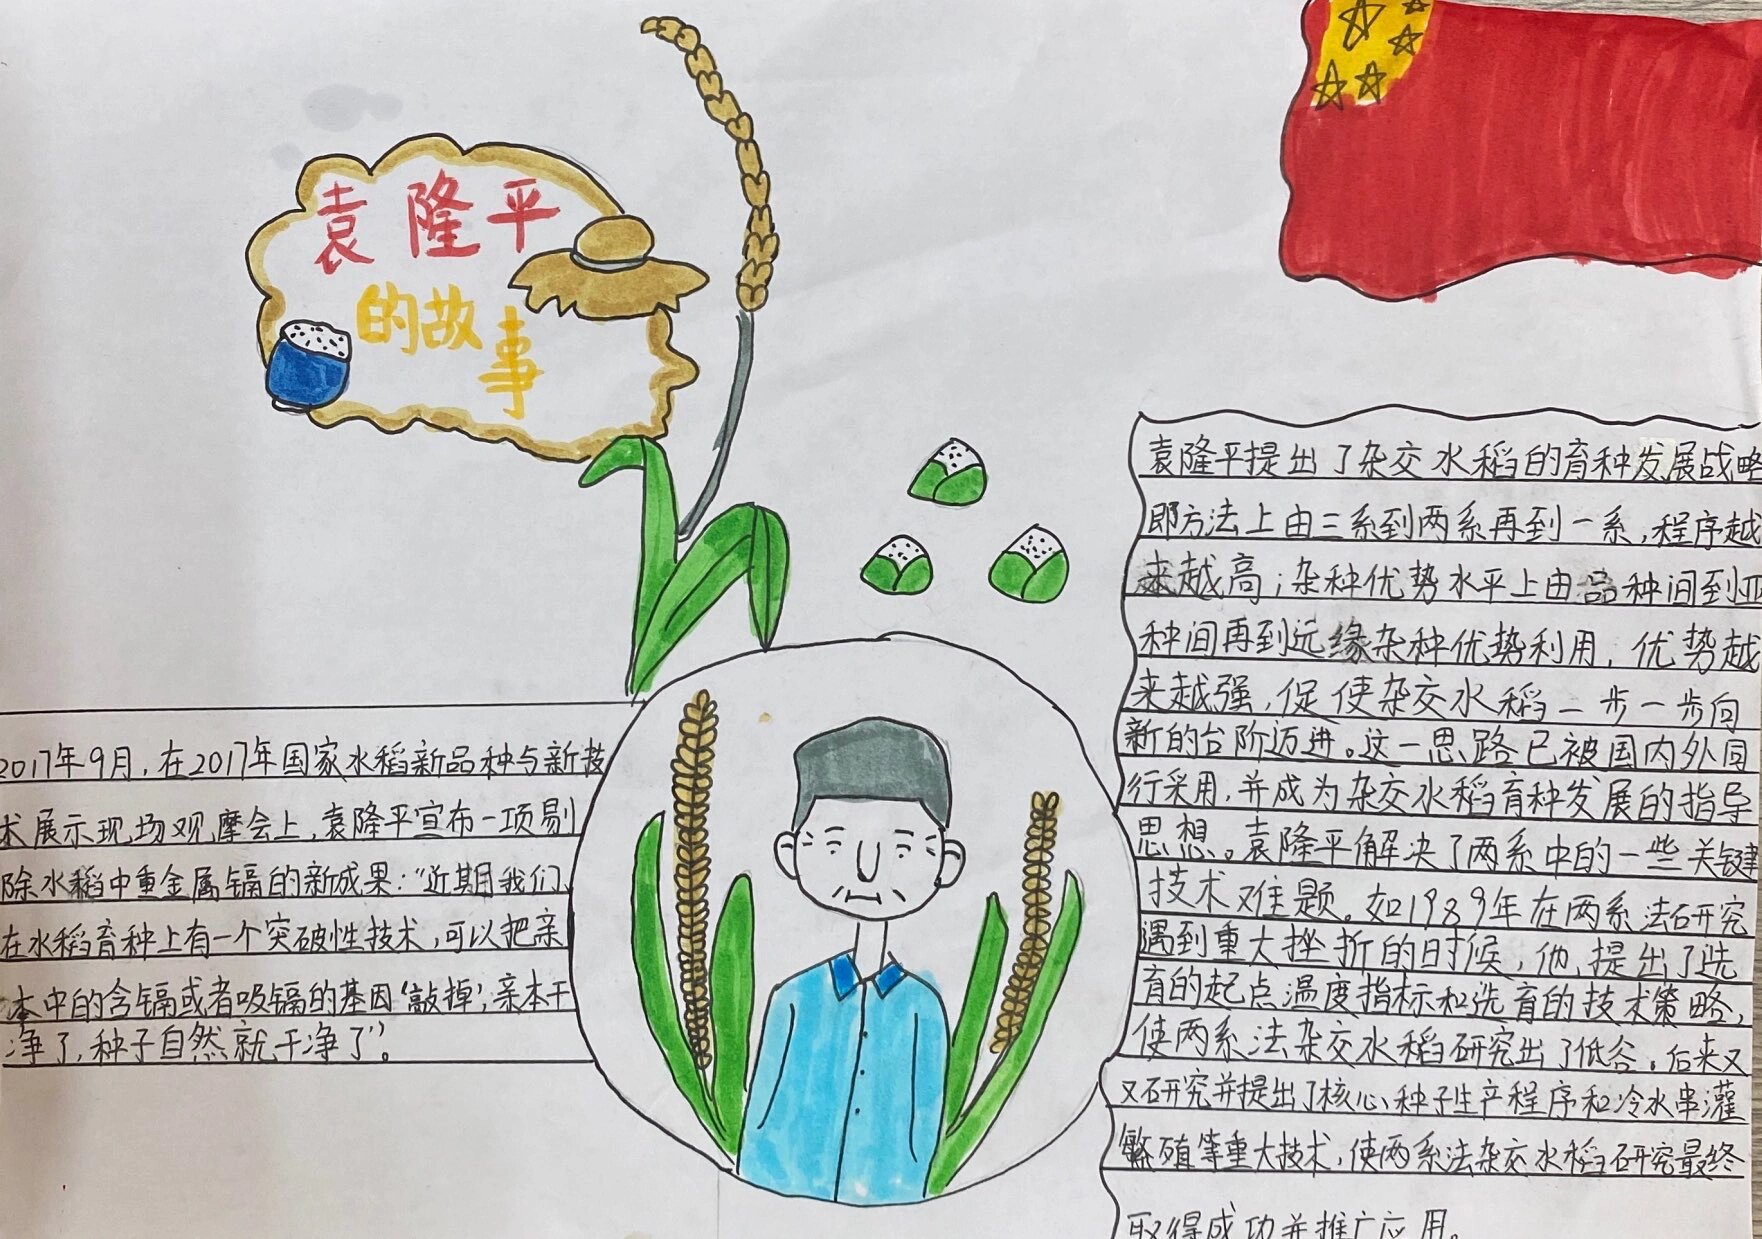 袁隆平
的故事
2017年9月,在2017年国家水稻新品种与新技
术展示现场观摩会上,袁隆平宣布一项剔
除水稻中重金属镉的新成果:“近期我们
在水稻育种上有一个突破性技术,可以把亲
本中的含镉或者吸镉的基因‘敲掉’,亲本干
净了,种子自然就干净了”。
袁隆平提出了杂交水稻的育种发展战略
即方法上由三系到两系再到一系,程序越
来越高;杂种优势水平上由品种间到亚
种间再到远缘杂种优势利用,优势越
来越强,促使杂交水稻一步一步向
新的台阶迈进。这一思路已被国内外同
行采用,并成为杂交水稻育种发展的指导
思想。袁隆平解决了两系中的一些关键
技术难题。如1989年在两系法研究
遇到重大挫折的时候,他,提出了选
育的起点温度指标和选育的技术策略,
使两系法杂交水稻研究出了低谷。后来又
又研究并提出了核心种子生产程序和冷水串灌
繁殖等重大技术,使两系法杂交水稻研究最终
取得成功并推广应用。